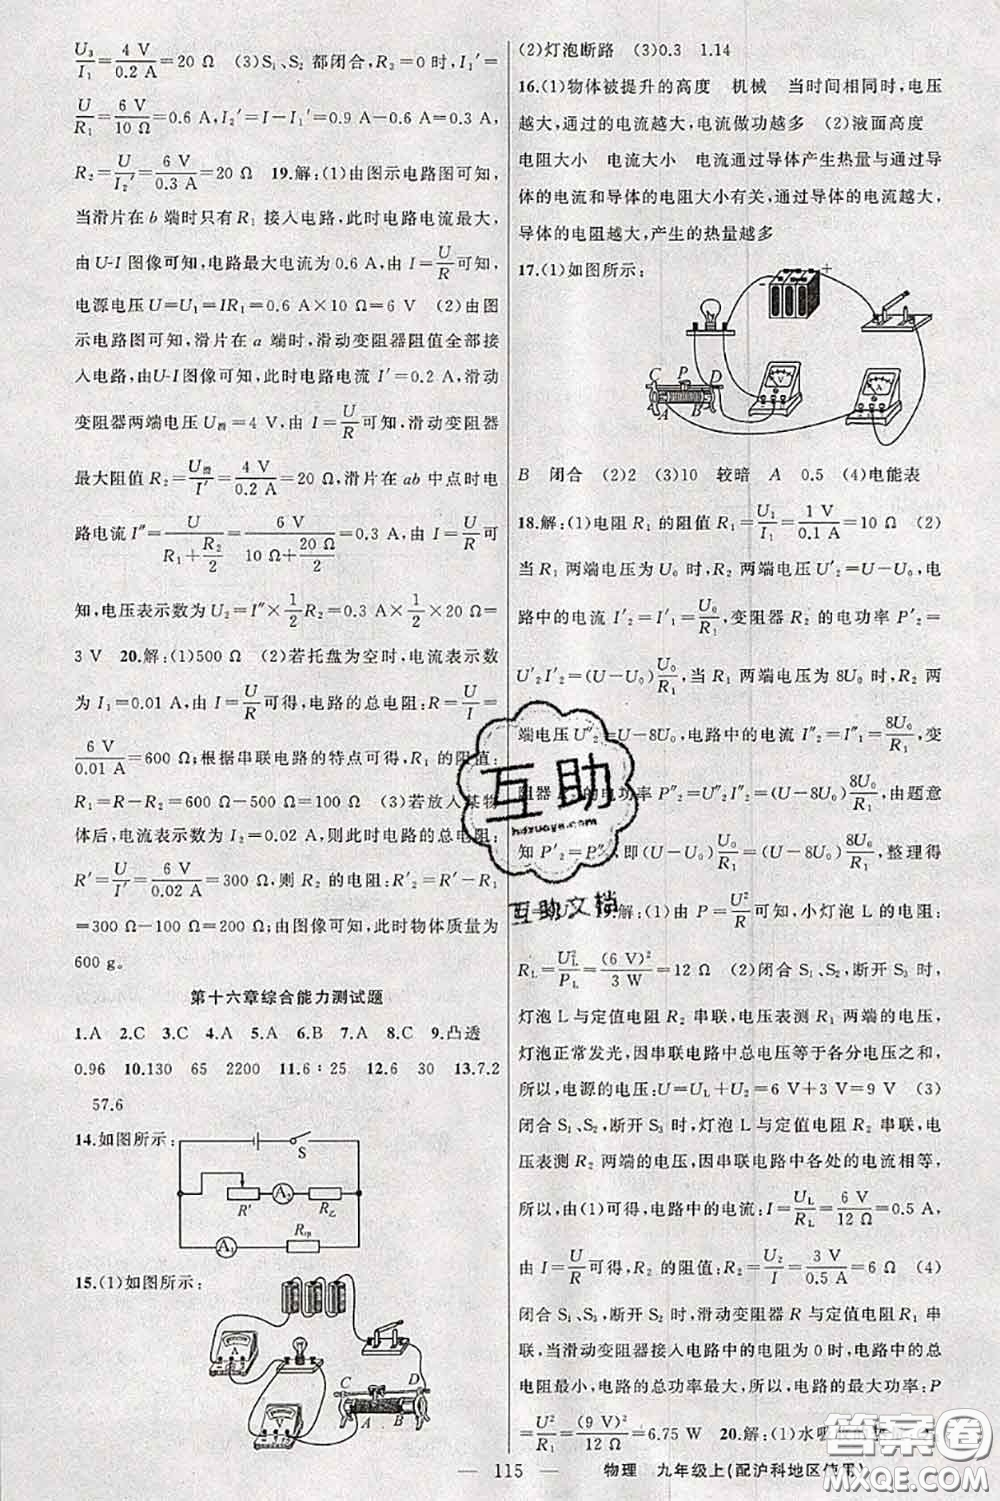 U₃/I₁=4 V/0.2 A=20 Ω (3)S₁、S₂ 都闭合，R₂=0时，I₁′=
U/R₁=6 V/10 Ω=0.6 A，I₂′=I−I₁′=0.9 A−0.6 A=0.3 A，
R₂=U/I₂′=6 V/0.3 A=20 Ω 19.解：(1)由图示电路图可知，
当滑片在 b 端时只有R₁ 接入电路，此时电路电流最大，
由 U-I 图像可知，电路最大电流为 0.6 A，由 I=U/R可知，
电源电压U=U₁=IR₁=0.6 A×10 Ω=6 V (2)由图
示电路图可知，滑片在 a 端时，滑动变阻器阻值全部接
入电路，由U-I图像可知，此时电路电流 I′=0.2 A，滑动
变阻器两端电压U滑=4 V，由 I=U/R可知，滑动变阻器
最大阻值 R₂=U滑/I′=4 V/0.2 A=20 Ω，滑片在 ab 中点时电
路电流 I″=U/(R₁+R₂/2)=6 V/(10 Ω+20 Ω/2)=0.3 A，由 I=U/R可
知，电压表示数为U₂=I″×1/2R₂=0.3 A×1/2×20 Ω=
3 V 20.解：(1)500 Ω (2)若托盘为空时，电流表示数
为 I₁=0.01 A，由 I=U/R可得，电路的总电阻：R=U/I₁=
6 V/0.01 A=600 Ω；根据串联电路的特点可得，R₁ 的阻值：
R₁=R−R₂=600 Ω−500 Ω=100 Ω (3)若放入某物
体后，电流表示数为 I₂=0.02 A，则此时电路的总电阻：
R′=U/I′=6 V/0.02 A=300 Ω，则 R₂ 的电阻：R′₂=R′−R₁
=300 Ω−100 Ω=200 Ω；由图像可知，此时物体质量为
600 g。
第十六章综合能力测试题
1.A 2.C 3.C 4.A 5.A 6.B 7.A 8.C 9.凸透
0.96 10.130 65 2200 11.6∶25 12.6 30 13.7.2
57.6
14.如图所示：
S
R′ A₂ R乙
A₁ R甲
15.(1)如图所示：
A
V
C D
A B
(2)灯泡断路 (3)0.3 1.14
16.(1)物体被提升的高度 机械 当时间相同时，电压
越大，通过的电流越大，电流做功越多 (2)液面高度
电阻大小 电流大小 电流通过导体产生热量与通过导
体的电流和导体的电阻大小有关，通过导体的电流越大，
导体的电阻越大，产生的热量越多
17.(1)如图所示：
+
C P D
A B
V
A
B 闭合 (2)2 (3)10 较暗 A 0.5 (4)电能表
18.解：(1)电阻 R₁ 的阻值 R₁=U₁/I₁=1 V/0.1 A=10 Ω (2)
当 R₁ 两端电压为 U₀ 时，R₂ 两端电压 U′₂=U−U₀，电
路中的电流 I′₂=I′₁=U₀/R₁，变阻器 R₂ 的电功率 P′₂=
U′₂I′₂=(U−U₀)U₀/R₁，当 R₁ 两端电压为 8U₀ 时，R₂ 两
端电压 U″₂=U−8U₀，电路中的电流 I″₂=I″₁=8U₀/R₁，变
阻器 R₂ 的电功率 P″₂=U″₂I″₂=(U−8U₀)8U₀/R₁，由题意
知 P′₂=P″₂，即(U−U₀)U₀/R₁=(U−8U₀)8U₀/R₁，整理得
解：(1)由 P=U²/R可知，小灯泡 L 的电阻：
R_L=U²_L/P_L=(6 V)²/3 W=12 Ω (2)闭合 S₁、S₂，断开 S₃ 时，
灯泡 L 与定值电阻 R₂ 串联，电压表测 R₂ 两端的电压，
灯泡正常发光，因串联电路中总电压等于各分电压之和，
所以，电源的电压：U=U_L+U₂=6 V+3 V=9 V (3)
闭合S₁、S₂，断开 S₃ 时，灯泡 L 与定值电阻 R₂ 串联，电
压表测 R₂ 两端的电压，因串联电路中各处的电流相等，
所以，由(1)可得，电路中的电流：I=U_L/R_L=6 V/12 Ω=0.5 A，
由 I=U/R可得，R₂ 的阻值：R₂=U₂/I=3 V/0.5 A=6 Ω (4)
闭合 S₁、S₃，断开 S₂ 时，滑动变阻器 R 与定值电阻 R₁ 串
联，当滑动变阻器接入电路中的电阻为 0 时，电路中的总
电阻最小，电路的总功率最大，所以，电路的最大功率：P
=U²/R₁=(9 V)²/12 Ω=6.75 W 20.解：(1)水吸
互助
hdzuoye.com
互助文档
— 115 — 物理 九年级上(配沪科地区使用)
答案圈
MXQE.COM